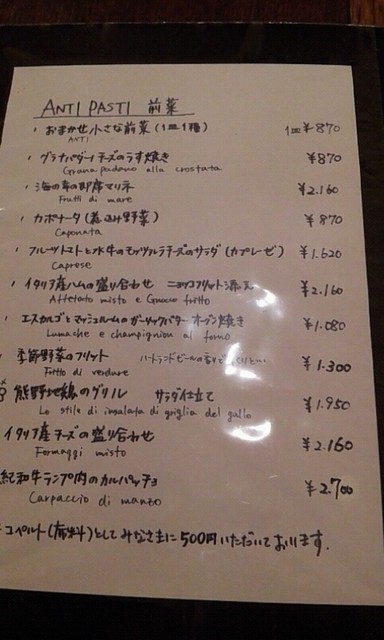 ANTI PASTI 前菜
・おまかせ小さな前菜(1皿1種) 1皿¥870
ANTI
・グラナパダーノチーズのうす焼き ¥870
Grana padano alla crostata
・海の幸の即席マリネ ¥2.160
Frutti di mare
・カポナータ(煮込み野菜) ¥870
Caponata
・フルーツトマトと水牛のモッツァレラチーズのサラダ(カプレーゼ) ¥1.620
Caprese
・イタリア産ハムの盛り合わせ ニョッコフリット添え ¥2.160
Affetato misto e Gnocco fritto
・エスカルゴとマッシュルームのガーリックバターオーブン焼き ¥1.080
Lumache e champignion al forno
季節野菜のフリット ハートランドビールの香り ¥1.300
Fritto di verdure
熊野地鶏のグリル サラダ仕立て ¥1.950
Lo stile di insalata di griglia del gallo
イタリア産チーズの盛り合わせ ¥2.160
Formaggi misto
紀和牛ランプ肉のカルパッチョ ¥2.700
Carpaccio di manzo
コペルト(席料)としてみなさまに500円いただいております.